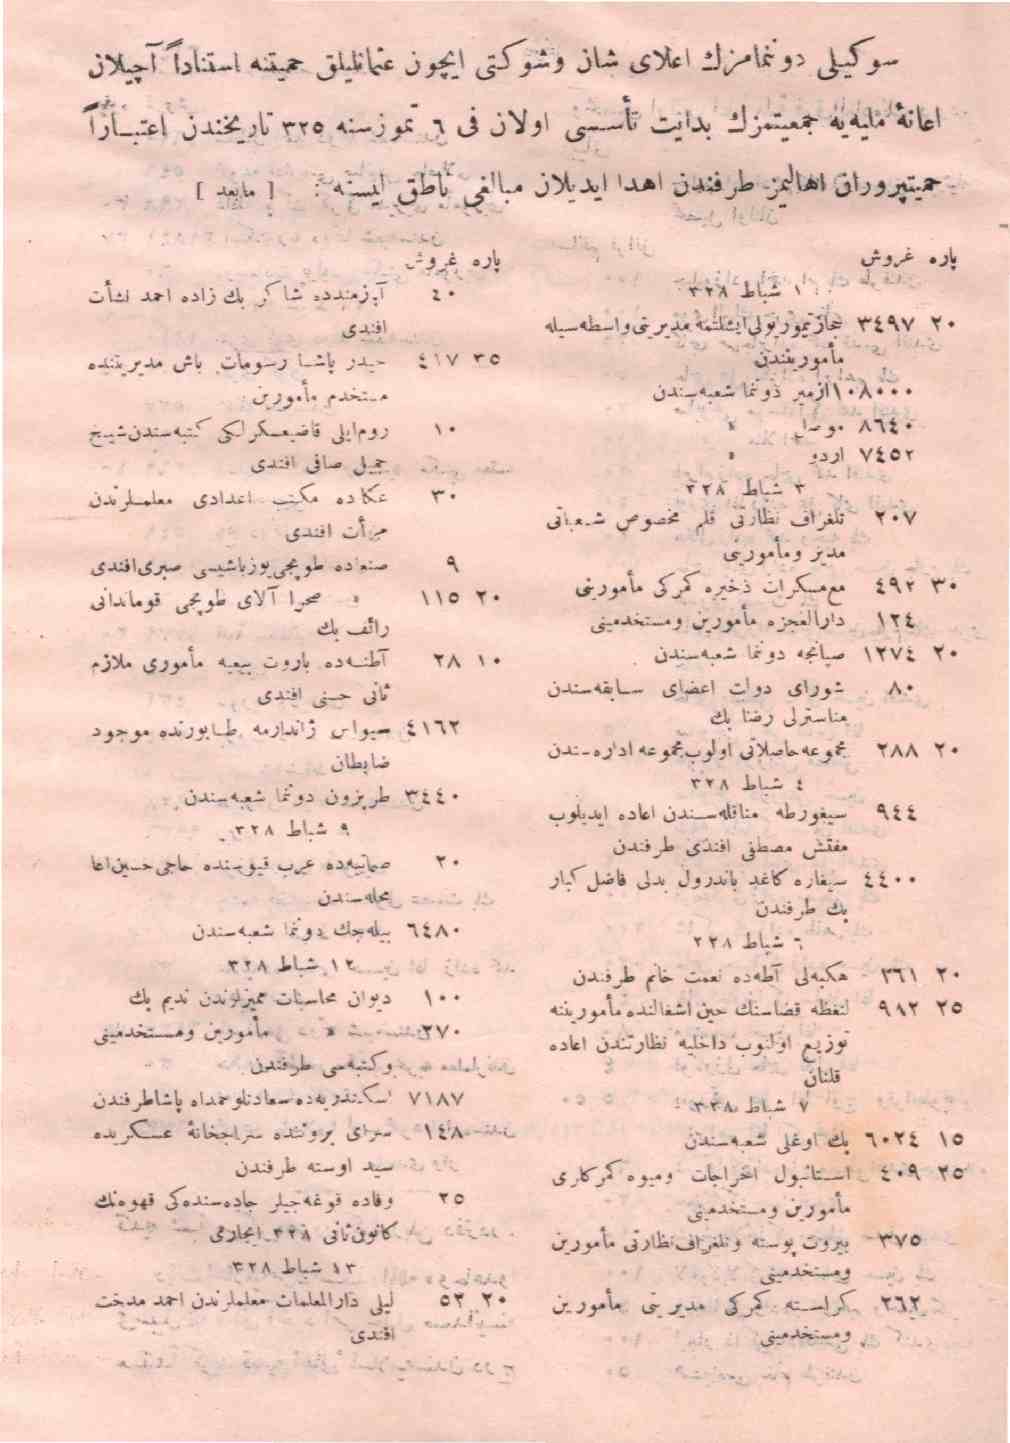 سوكیلی دونمامزك اعلای شان وشوكتی ایچون عثمانلیلق حمیتنه استناداً آچیلان
اعانهٔ ملیه‌یه جمعیتمزك بدایت تأسیسی اولان فی ٦ تموز سنه ٣٢٥ تاریخندن اعتباراً
حمیتپروران اهالیمز طرفندن اهدا ایدیلان مبالغی ناطق لیسته : [ مابعد ]
پاره غروش
١ شباط ٣٢٨
٢٠ ٣٤٩٧ حجاز تیموریولی ایشلتمه مدیریتی واسطه‌سیله
مأموریندن
١٠٨٠٠٠ ازمیر دونما شعبه‌سندن
٨٦٤٠ موصل »
٧٤٥٢ اردو »
٣ شباط ٣٢٨
٢٠٧ تلغراف نظارتی قلم مخصوص شعباتی
مدیر ومأمورینی
٣٠ ٤٩٢ مع مسكرات ذخیره كمركی مأمورینی
١٢٤ دارالعجزه مأمورین ومستخدمینی
٢٠ ١٢٧٤ صپانجه دونما شعبه‌سندن
٨٠ شورای دولت اعضای سابقه‌سندن
مناسترلی رضا بك
٢٠ ٢٨٨ مجموعه حاصلاتی اولوب مجموعه اداره‌سندن
٤ شباط ٣٢٨
٩٤٤ سیغورطه مناقله‌سندن اعاده ایدیلوب
مفتش مصطفی افندی طرفندن
٤٤٠٠ سیغاره كاغد باندرول بدلی فاضل كبار
بك طرفندن
٦ شباط ٣٢٨
٢٠ ٣٦١ هكبه‌لی آطه‌ده نعمت خانم طرفندن
٢٥ ٩٨٢ لنغظه قضاسنك حین اشغالنده مأموریننه
توزیع اولنوب داخلیه نظارتندن اعاده
قلنان
٧ شباط ٣٢٨
١٥ ٦٠٢٤ بك اوغلی شعبه‌سندن
٢٥ ٤٠٩ استانبول اخراجات ومیوه كمركلری
مأمورین ومستخدمینی
٣٧٥ بیروت پوسته وتلغراف نظارتی مأمورین
ومستخدمینی
٢٦٢ كراسته كمركی مدیریتی مأمورین
ومستخدمینی
پاره غروش
٤٠ آیازمنده شاكر بك زاده احمد نشأت
افندی
٣٥ ٤١٧ حیدر پاشا رسومات باش مدیریتنده
مستخدم مأمورین
١٠ روم‌ایلی قاضیعسكرلكی كتبه‌سندن شیخ
جمیل صافی افندی
٣٠ عكاده مكتب اعدادی معلملرندن
مرأت افندی
٩ صنعاده طوپجی یوزباشیسی صبری افندی
٢٠ ١١٥ » صحرا آلای طوپجی قوماندانی
رائف بك
١٠ ٢٨ آطنه‌ده باروت بیعیه مأموری ملازم
ثانی حسنی افندی
٤١٦٢ سیواس ژاندارمه طابورنده موجود
ضابطان
٣٤٤٠ طربزون دونما شعبه‌سندن
٩ شباط ٣٢٨
٢٠ صماتیه‌ده عرب قیوسنده حاجی حسین اغا
محله‌سندن
٦٤٨٠ بیله‌جك دونما شعبه‌سندن
١٢ شباط ٣٢٨
١٠٠ دیوان محاسبات ممیزلرندن ندیم بك
٢٧٠ » » مأمورین ومستخدمینی
وكتبه‌سی طرفندن
٧١٨٧ اسكندریه‌ده سعادتلو حمداه پاشا طرفندن
١٤٨ سرای برونده سراجخانهٔ عسكریده
سید اوسته طرفندن
٢٥ وفاده قوغه‌جیلر جاده‌سنده‌كی قهوه‌نك
كانون ثانی ٣٢٨ ایجاری
١٣ شباط ٣٢٨
٢٠ ٥٢ لیلی دارالمعلمات معلملرندن احمد مدحت
افندی